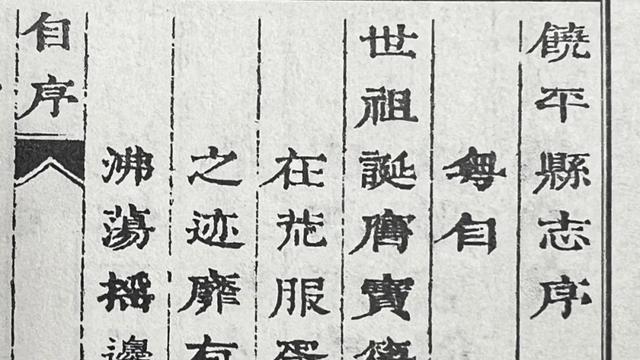 饒平縣志序
粵自
世祖誕膺寶
在荒服
之迹靡有
沸蕩搖邊
自序